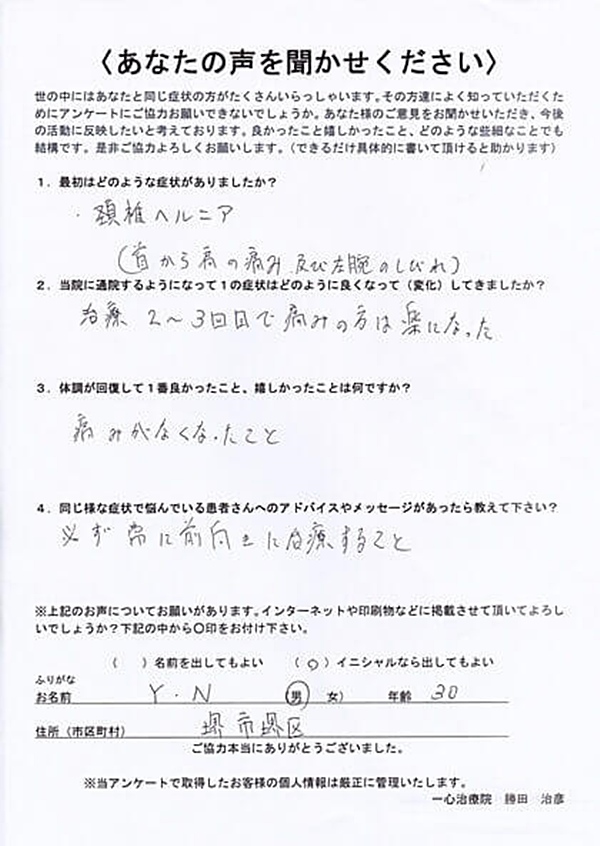 〈あなたの声を聞かせください〉
世の中にはあなたと同じ症状の方がたくさんいらっしゃいます。その方達によく知っていただくた
めにアンケートにご協力お願いできないでしょうか。あなた様のご意見をお聞かせいただき、今後
の活動に反映したいと考えております。良かったこと嬉しかったこと、どのような些細なことでも
結構です。是非ご協力よろしくお願いします。（できるだけ具体的に書いて頂けると助かります）
１．最初はどのような症状がありましたか？
・頚椎ヘルニア
（首から肩の痛み及び左腕のしびれ）
２．当院に通院するようになって１の症状はどのように良くなって（変化）してきましたか？
治療 2～3回目で痛みの方は楽になった
３．体調が回復して１番良かったこと、嬉しかったことは何ですか？
痛みがなくなったこと
４．同じ様な症状で悩んでいる患者さんへのアドバイスやメッセージがあったら教えて下さい？
必ず常に前向きに治療すること
※上記のお声についてお願いがあります。インターネットや印刷物などに掲載させて頂いてよろし
いでしょうか？下記の中から〇印をお付け下さい。
（ ）名前を出してもよい （○）イニシャルなら出してもよい
ふりがな
お名前 Y・N （男 女） 年齢 30
住所（市区町村） 堺市堺区
ご協力本当にありがとうございました。
※当アンケートで取得したお客様の個人情報は厳正に管理いたします。
一心治療院 勝田 治彦